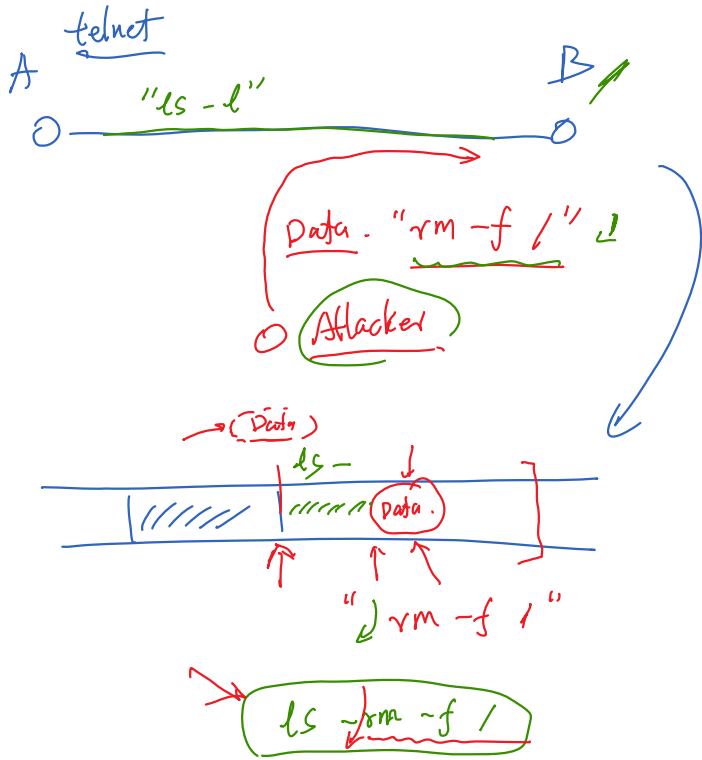 telnet
A
B
"ls -l"
Data. "rm -f /" ↲
Attacker
(Data)
ls -
Data.
"↲ rm -f /"
ls - rm -f /